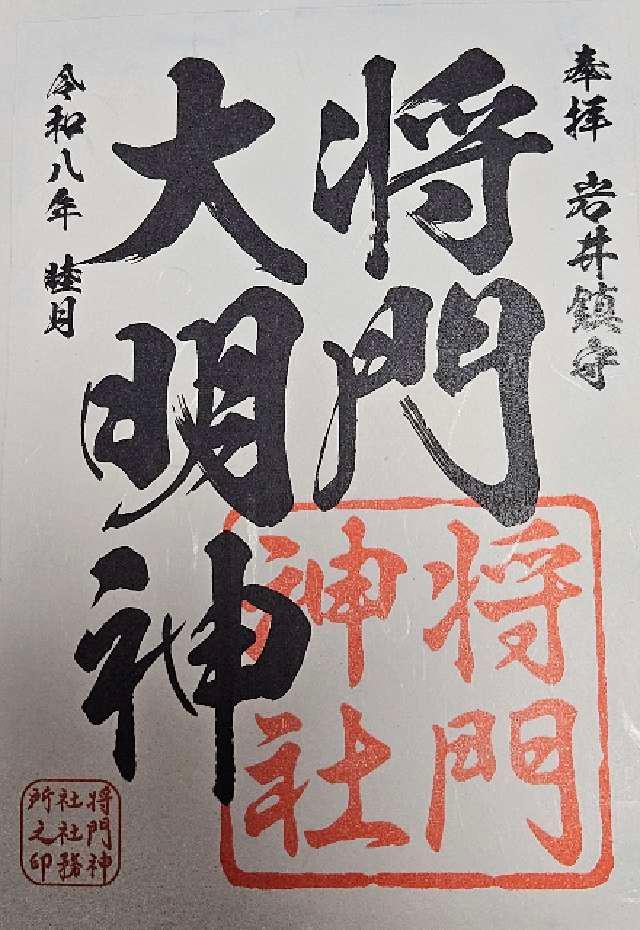 奉拝 岩井鎮守
将門
大明神
令和八年 睦月
将門
神社
将門神
社社務
所之印